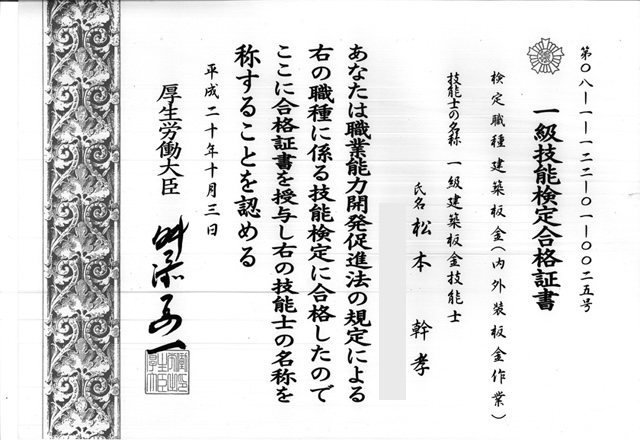 第〇八―一―一二二―〇一―〇〇二五号
一級技能検定合格証書
検定職種 建築板金(内外装板金作業)
技能士の名称 一級建築板金技能士
氏名 松本 幹孝
あなたは職業能力開発促進法の規定による
右の職種に係る技能検定に合格したので
ここに合格証書を授与し右の技能士の名称を
称することを認める
平成二十年十月三日
厚生労働大臣
舛添要一